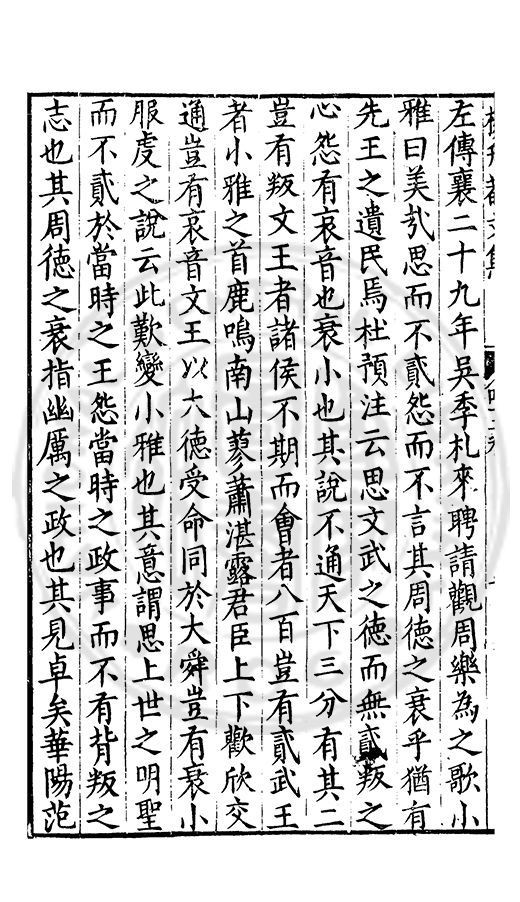 左傳襄二十九年吳季札來聘請觀周樂為之歌小
雅曰美㢤思而不貳怨而不言其周徳之衰乎猶有
先王之遺民焉杜預注云思文武之徳而無貳叛之
心怨有哀音也衰小也其說不通天下三分有其二
豈有叛文王者諸侯不期而會者八百豈有貳武王
者小雅之首鹿鳴南山蓼蕭湛露君臣上下歡欣交
通豈有哀音文王以大徳受命同於大舜豈有衰小
服虔之說云此歎變小雅也其意謂思上世之明聖
而不貳於當時之王怨當時之政事而不有背叛之
志也其周徳之衰指幽厲之政也其見卓矣華陽范